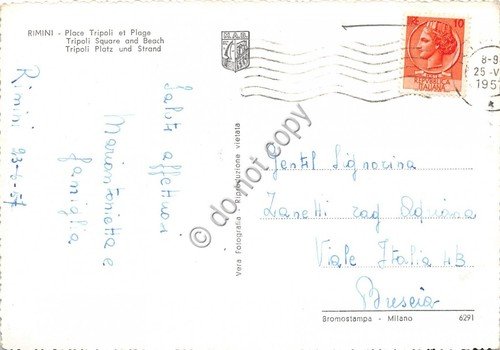 RIMINI - Place Tripoli et Plage
Tripoli Square and Beach
Tripoli Platz und Strand
Rimini 23-6-57
Saluti affettuosi
Mariantonietta e
famiglia
Vera Fotografia - Riproduzione vietata
10
REPUBBLICA
ITALIANA
8-9
25-V
195
Gentil Signorina
Zanetti rag Adriana
Viale Italia 43
Brescia
Bromostampa - Milano
6291
do not copy